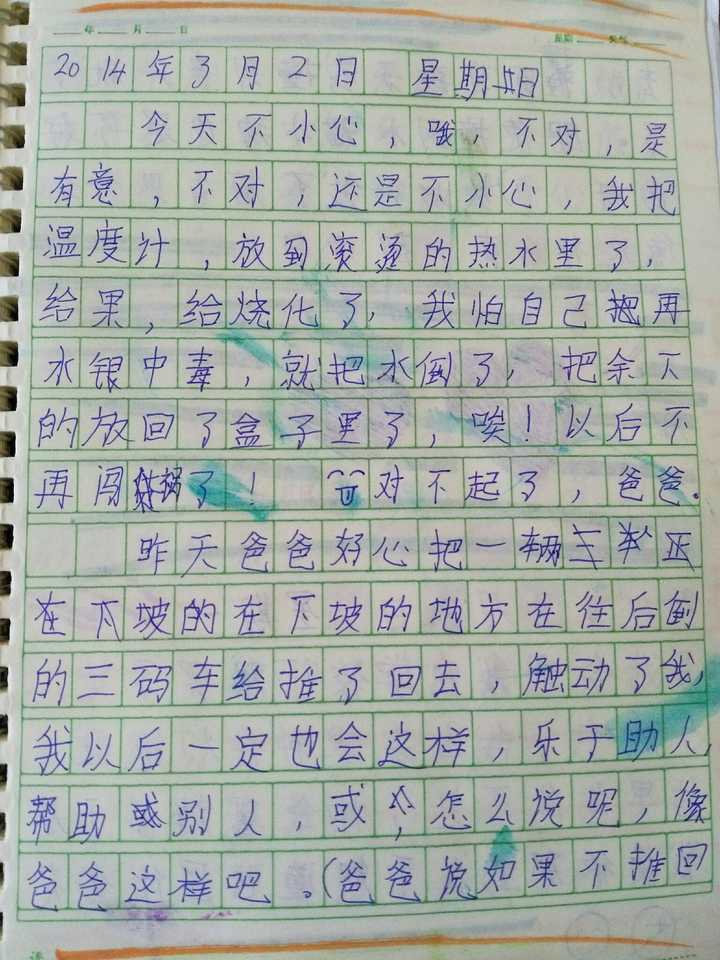 年 月 日
2014年3月2日 星期日
今天不小心，哦，不对，是
有意，不对，还是不小心，我把
温度计，放到滚烫的热水里了，
给果，给烧化了，我怕自己把再
水银中毒，就把水倒了，把余下
的放回了盒子里了，唉！以后不
再闯祸了！ 对不起了，爸爸。
昨天爸爸好心把一辆三 正
在下坡的在下坡的地方在往后倒
的三码车给推了回去，触动了我，
我以后一定也会这样，乐于助人，
帮助或别人，或，怎么说呢，像
爸爸这样吧。（爸爸说如果不推回